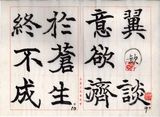 翼談
意欲濟
於蒼生
終不成